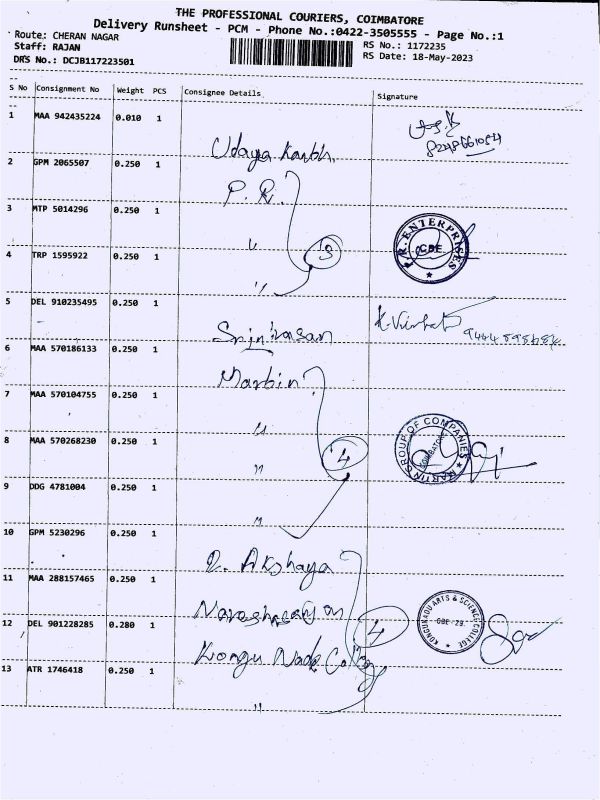 THE PROFESSIONAL COURIERS, COIMBATORE
Delivery Runsheet - PCM - Phone No.:0422-3505555 - Page No.:1
Route: CHERAN NAGAR
RS No.: 1172235
Staff: RAJAN
RS Date: 18-May-2023
DRS No.: DCJB117223501
S No Consignment No Weight PCS Consignee Details Signature
1 MAA 942435224 0.010 1 Udaya Kanth
2 GPM 2065507 0.250 1 P. R.
3 MTP 5014296 0.250 1 "
R. ENTERPRISES
CBE
3
4 TRP 1595922 0.250 1 "
5 DEL 910235495 0.250 1 Srinivasan
6 MAA 570186133 0.250 1 Martin
7 MAA 570104755 0.250 1 "
8 MAA 570268230 0.250 1 "
MARTIN GROUP OF COMPANIES
COIMBATORE
4
9 DDG 4781004 0.250 1 "
10 GPM 5230296 0.250 1 Akshaya
11 MAA 288157465 0.250 1
12 DEL 901228285 0.280 1 Kongu Nadu
KONGUNADU ARTS & SCIENCE COLLEGE
CBE-29
4
13 ATR 1746418 0.250 1 "